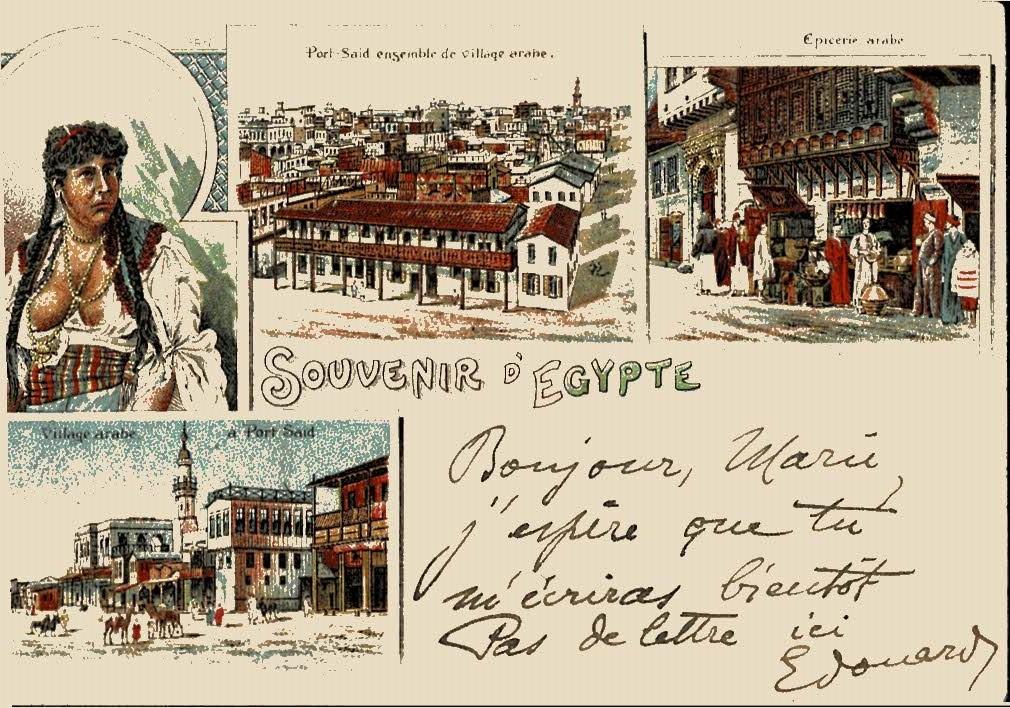 Port-Said ensemble de village arabe.
Epicerie arabe
SOUVENIR D'EGYPTE
Village arabe à Port Saïd
Bonjour, Marie,
j'espère que tu
m'écriras bientôt
Pas de lettre ici
Edouard